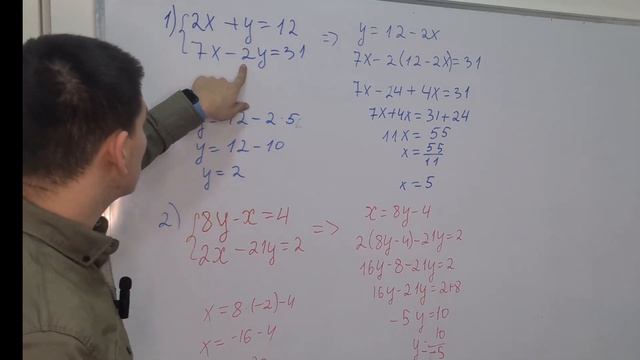 1) 2x + y = 12
7x - 2y = 31
=> y = 12 - 2x
7x - 2(12 - 2x) = 31
7x - 24 + 4x = 31
7x + 4x = 31 + 24
11x = 55
x = 55/11
x = 5
y = 12 - 2·5
y = 12 - 10
y = 2
2) 8y - x = 4
2x - 21y = 2
=> x = 8y - 4
2(8y - 4) - 21y = 2
16y - 8 - 21y = 2
16y - 21y = 2 + 8
-5y = 10
y = 10/-5
x = 8·(-2) - 4
x = -16 - 4